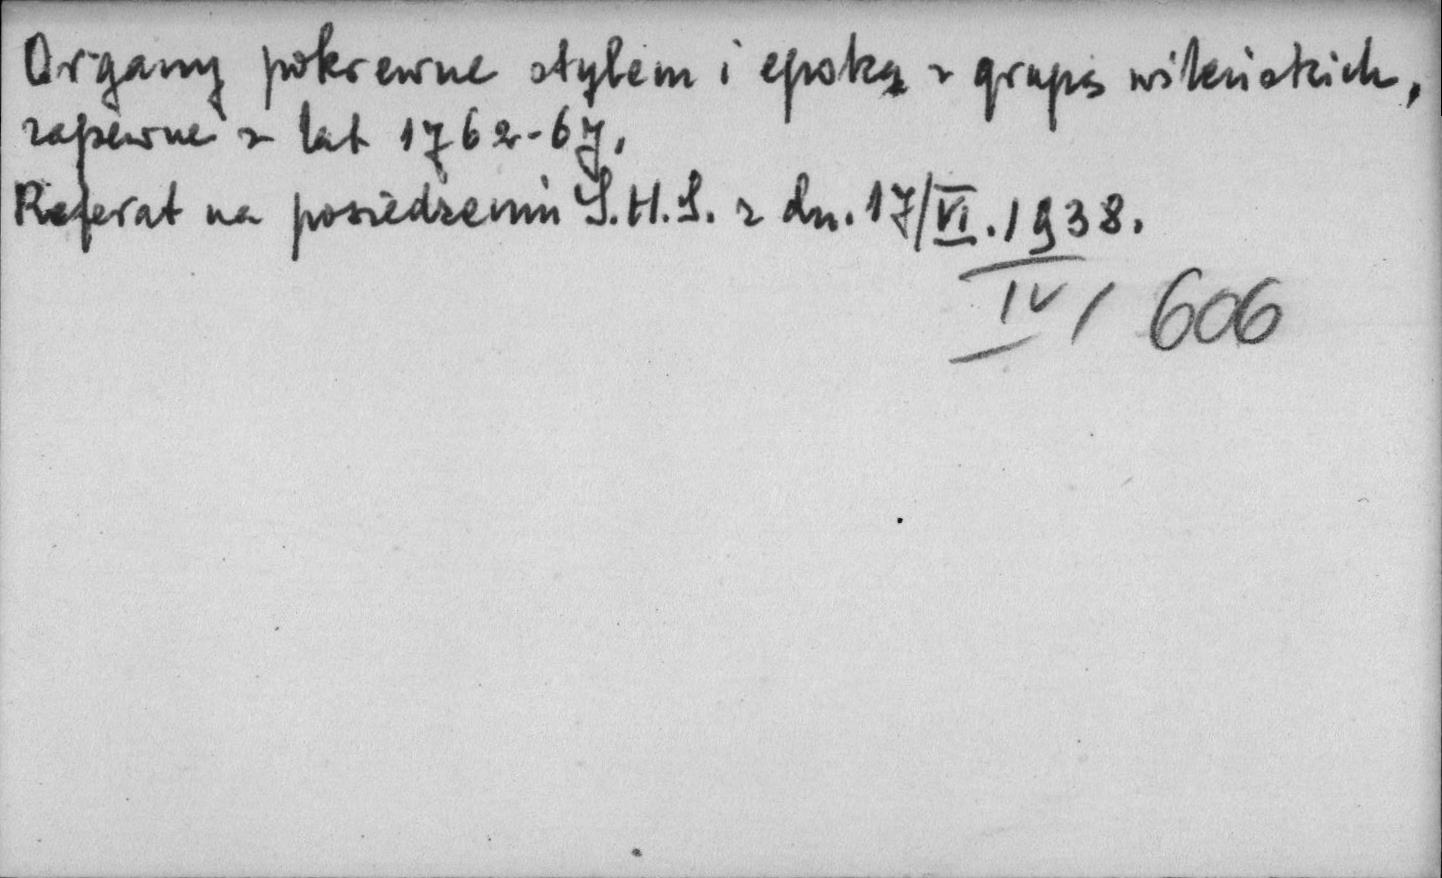 Organy pokrewne stylem i epoką z grupą wileńskich,
zapewne z lat 1762-67.
Referat na posiedzeniu S.H.S. z dn. 17/VI.1938.
IV/606